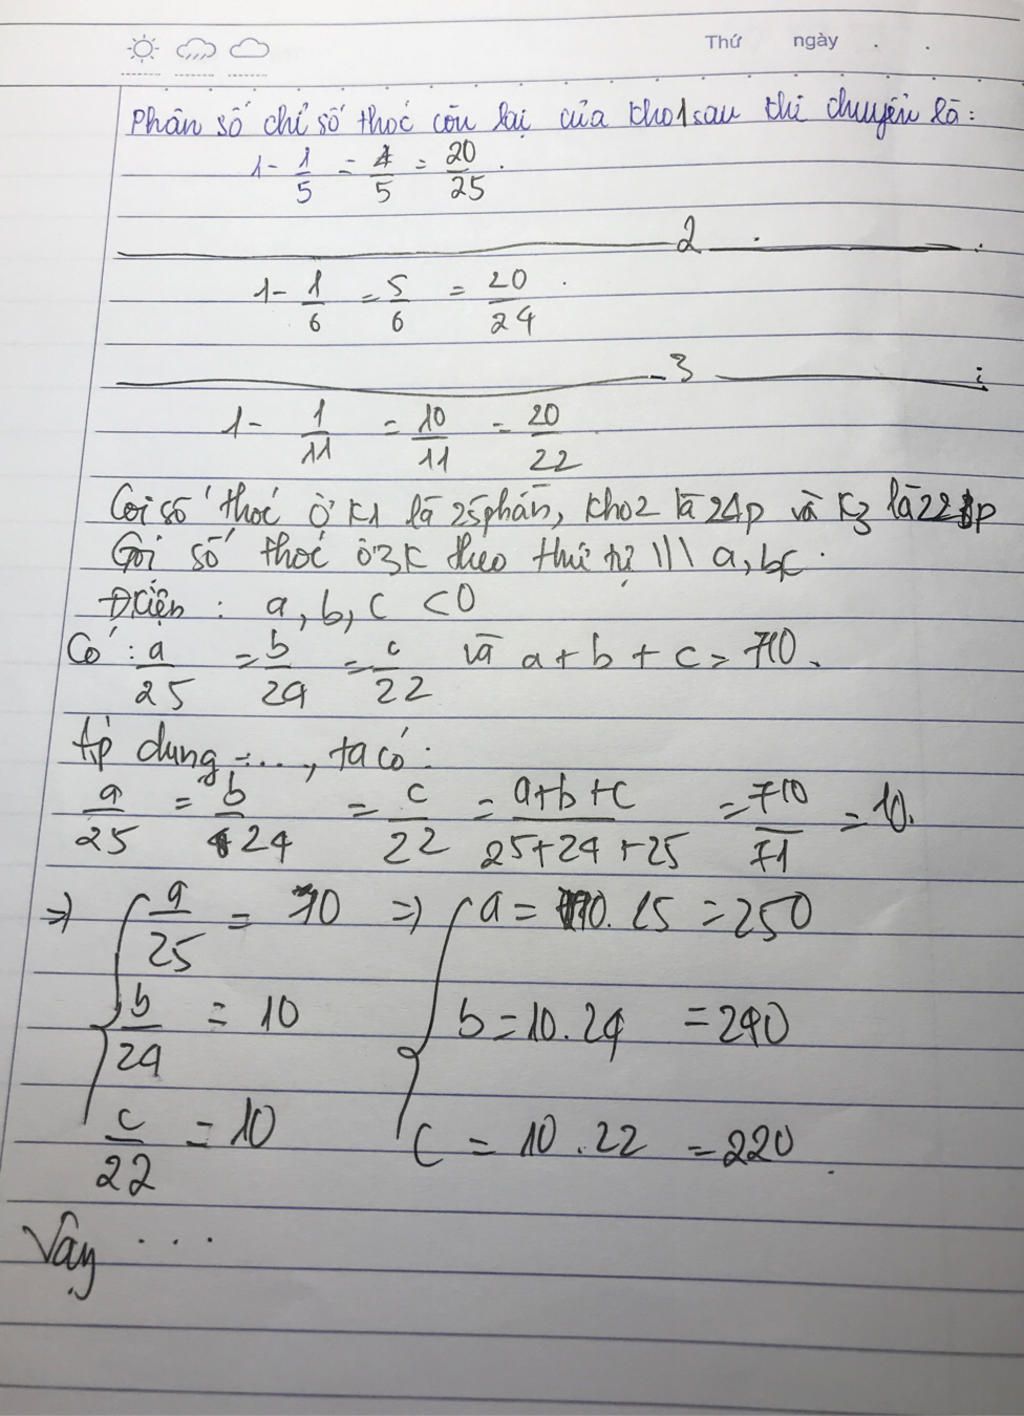 Thứ ngày . .
Phân số chỉ số thóc còn lại của kho1 sau khi chuyển là:
1 - 1/5 = 4/5 = 20/25 .
2 . :
1 - 1/6 = 5/6 = 20/24 .
3 :
1 - 1/11 = 10/11 = 20/22
Coi số thóc ở K1 là 25 phần, kho2 là 24p và K3 là 22 p
Gọi số thóc ở 3K theo thứ tự a, b, c .
Đkiện : a, b, c < 0
Có : a/25 = b/24 = c/22 và a + b + c = 710 .
Áp dụng ..., ta có:
a/25 = b/24 = c/22 = a+b+c/25+24+25 = 710/71 = 10.
=> a/25 = 10 => a = 10 . 25 = 250
b/24 = 10 b = 10 . 24 = 240
c/22 = 10 c = 10 . 22 = 220 .
Vậy ...